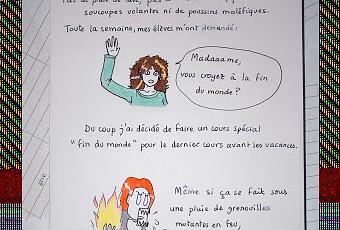 soucoupes volantes ni de poussins maléfiques.
Toute la semaine, mes élèves m'ont demandé :
Madaaame,
vous croyez à la fin
du monde ?
Du coup j'ai décidé de faire un cours spécial
"fin du monde" pour le dernier cours avant les vacances.
Même si ça se fait sous
une pluie de grenouilles
mutantes en feu,